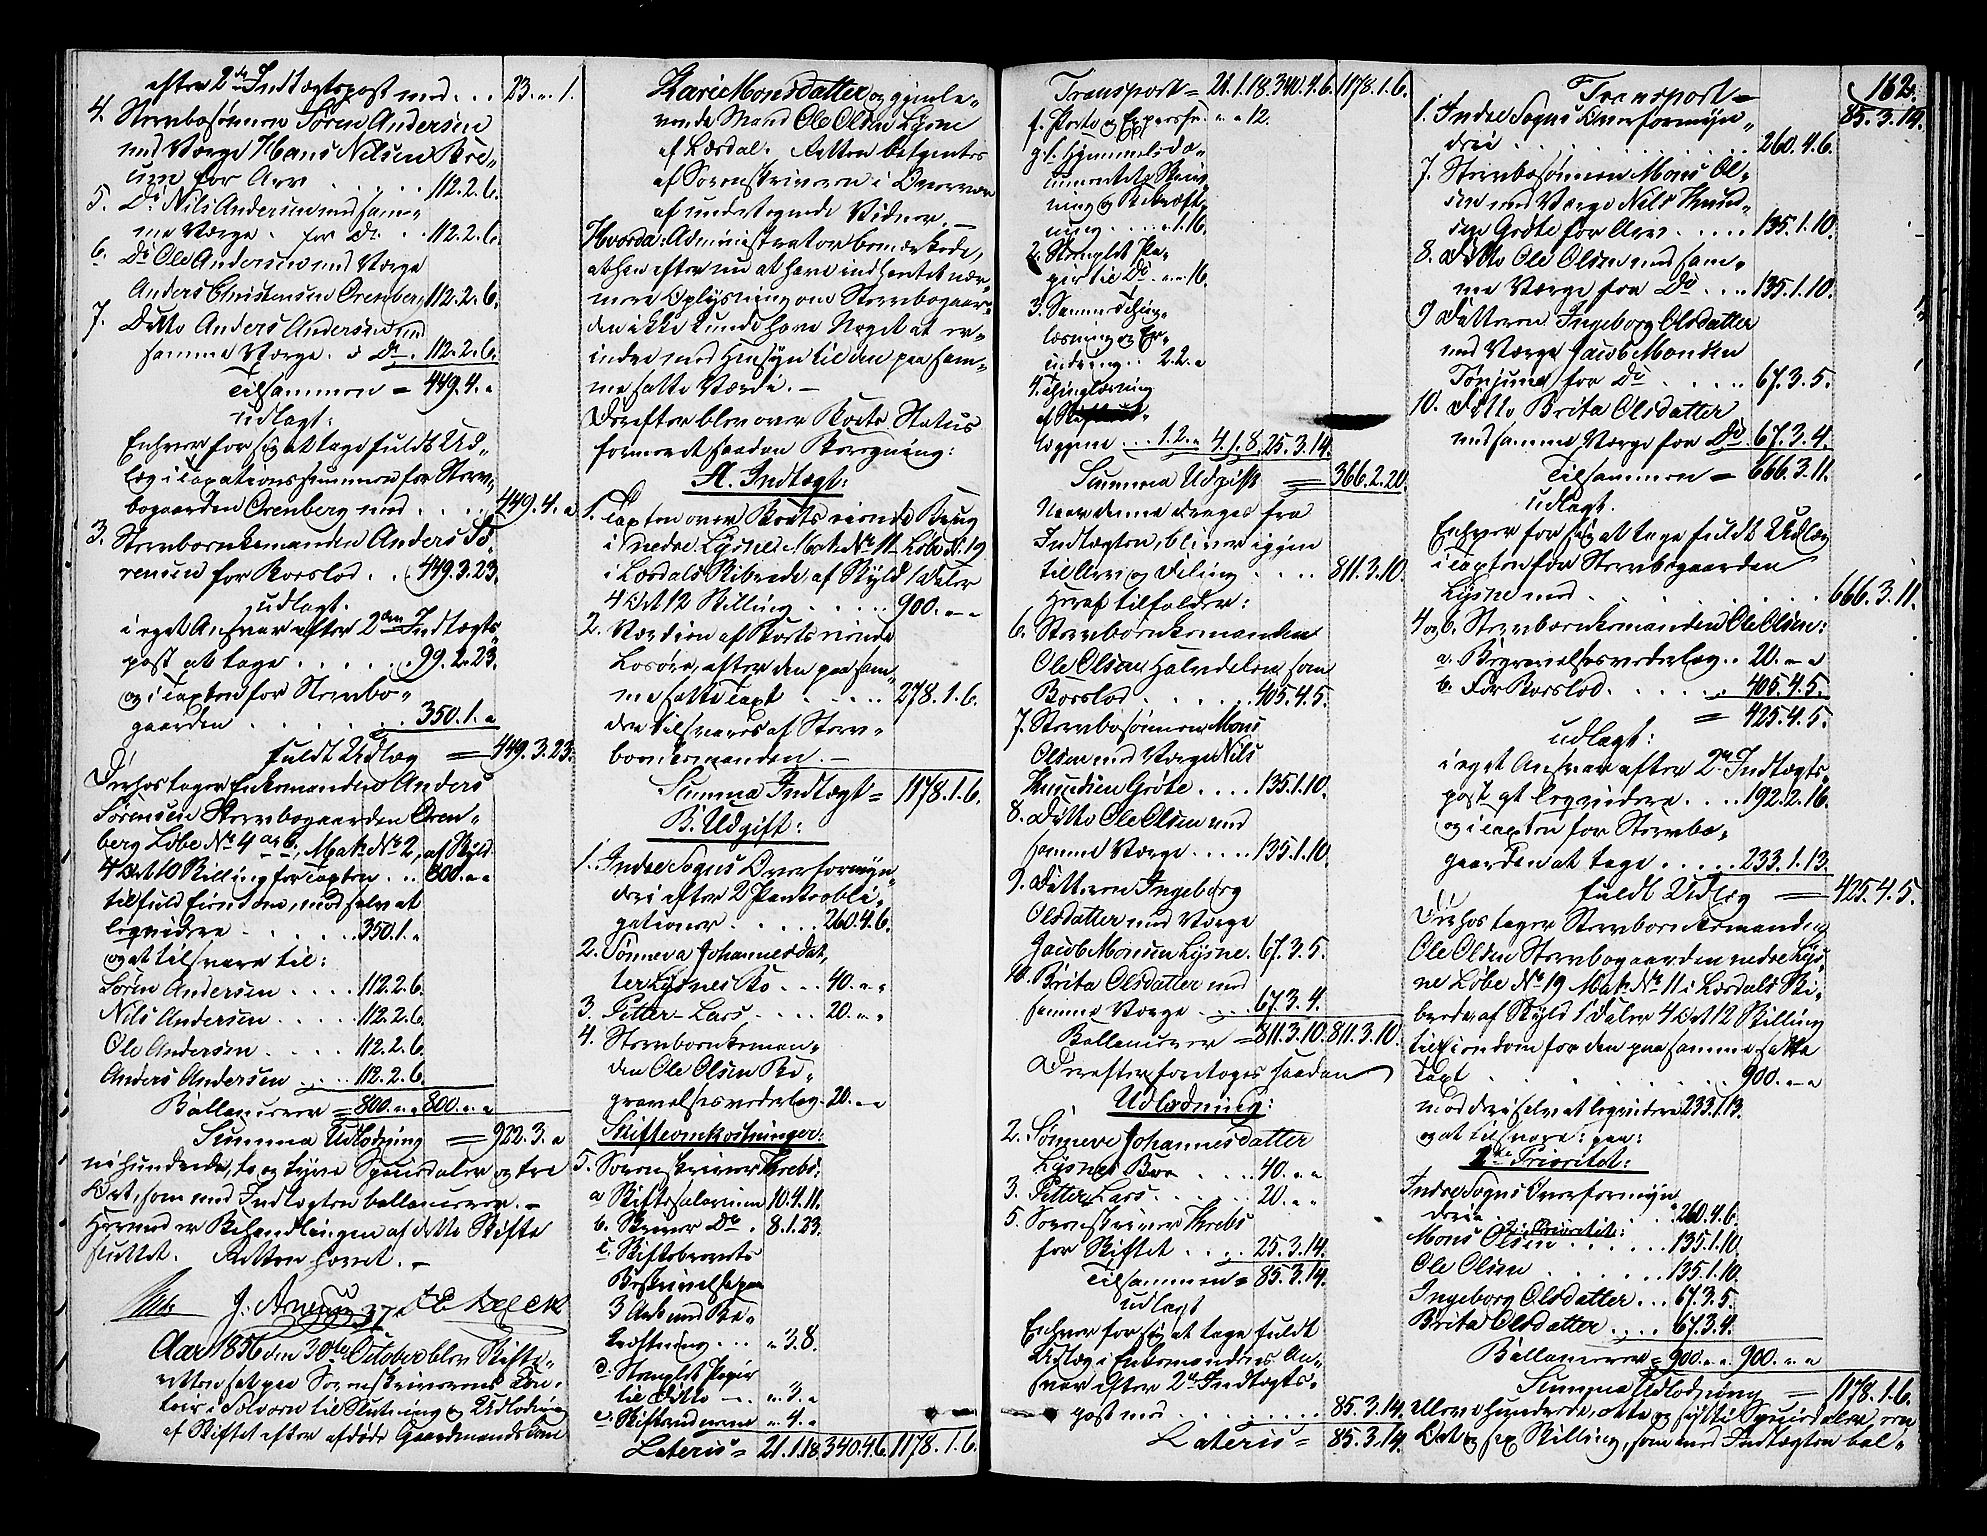 efter 2den Indtægtspost med . . . 23. „ 1.
4. Stervbosønnen Sören Andersen
med Værge Hans Nilsen Bre-
um for Arv . . . . . 112.2.6.
5. Do Nils Andersen med sam-
me Værge . for Do . . 112.2.6.
6. Do Ole Andersen med Værge
Anders Christensen Orenberg 112.2.6.
7. Ditto Anders Andersen med
samme Værge . . Do . 112.2.6.
Tilsammen = 449.4. „
udlagt:
Enhver for sig at tage fuldt Ud-
læg i Taxationssummen for Sterv-
bogaarden Orenberg med . . . . 449.4. „
3. Stervboenkemanden Anders Sö-
rensen for Boeslod . . 449.3.23.
udlagt.
i eget Ansvar efter 2den Indtægts-
post at tage . . . . . 99.2.23.
og i Taxten for Stervbo-
gaarden . . . . . . . 350.1. „
fuldt Udlæg = 449.3.23.
Derhos tager Enkemanden Anders
Sörensen Stervbogaarden Oren-
berg Løbe No 4 og 6, Matr. No 2, af Skyld
4 Ort 10 Skilling for Taxten . . 800. „ „
til fuld Eiendom, mod selv at
liqvidere . . . . . . 350.1. „
og at tilsvare til:
Sören Andersen . . . . 112.2.6.
Nils Andersen . . . . . 112.2.6.
Ole Andersen . . . . 112.2.6.
Anders Andersen . . . . 112.2.6.
Ballancerer = 800. „ „ 800. „ „
Summa Udlodning = 922.3. „
nihundrede, to og tyve Speciedaler og tre
Ort, som med Indtægten ballancerer. –
Hermed er Behandlingen af dette Skifte
sluttet. Retten hævet. –
Aar 1856 den 30te October blev Skifte-
retten sat paa Sorenskriverens Con-
toir i Solvorn til Slutning og Udlodning
af Skiftet efter afdøde Gaardmandskone
Kari Monsdatter og gjenle-
vende Mand Ole Olsen Lysne
af Lærdal. Retten betjentes
af Sorenskriveren i Overvær
af undertegnede Vidner. –
Hvorda: Administrator bemærkede,
at han efter nu at have indhentet nær-
mere Oplysning om Stervbogaar-
den ikke kunde have Noget at er-
indre med Hensyn til den paa sam-
me satte Værdi. –
Derefter blev over Boets Status
formeret saadan Beregning:
A. Indtægt:
1. Taxten over Boets eiende Brug
i nedre Lysne, Matr. No 11 Løbe No 19
i Lærdals Skibrede, af Skyld 1 Daler
4 Ort 12 Skilling . . . . . 900. „ „
2. Værdien af Boets eiende
Løsøre, efter den paa sam-
me satte Taxt . . . . . 278.1.6.
den tilsvares af Sterv-
boenkemanden. –
Summa Indtægt = 1178.1.6.
B. Udgift:
1. Indre Sogns Overformyn-
deri efter 2 Panteobli-
gationer . . . . . 260.4.6.
2. Sönneva Johannesdat-
ter Lysnes Bo . . . 40. „ „
3. Petter-Lars . . . . 20. „ „
4. Stervboenkeman-
den Ole Olsen Be-
gravelsesvederlag . 20. „ „
Skifteomkostninger:
5. Sorenskriver Krebs:
a Skiftesalarium 10.4.11.
b. Skriver Do . 8.1.23.
c. Skiftebrevets
Beskrivelse paa
3 Ark med Be-
kræftning . . . „ 3.8.
d. Stemplet Papir
til Ditto . . . „ 3. „
e. Skiftevidnerne „ 4. „
Lateris = 21.1.18. 340.4.6. 1178.1.6.
Transport = 21.1.18. 340.4.6. 1178.1.6.
f. Porto og Expresse . „ „ 12.
g 1. Hjemmelsdo-
cumentets Skriv-
ning og Bekræft-
ning . . . . . 1.16.
2. Stemplet Pa-
pir til Do . „ „ 16.
3. Sammes Thing-
læsning og Er-
indring . . 2.2. „
4. Thinglæsning
af
læggene . . . 1.2. „ 4.1.8. 25.3.14.
Summa Udgift = 366.2.20.
Naar denne drages fra
Indtægten, bliver igjen
til Arv og Deling . . . . 811.3.10.
Heraf tilfalder:
6. Stervboenkemanden
Ole Olsen Halvdelen som
Boeslod . . . . . . 405.4.5.
7. Stervbosønnen Mons
Olsen med Værge Nils
Knudsen Gröte . . . . 135.1.10.
8. Ditto Ole Olsen med
samme Værge . . . . . 135.1.10.
9. Datteren Ingeborg
Olsdatter med Værge
Jacob Monsen Lysne . 67.3.5.
10. Brita Olsdatter med
samme Værge . . . . 67.3.4.
Ballancerer = 811.3.10. 811.3.10.
Derefter foretoges saadan
Udlodning:
2. Sönneve Johannesdatter
Lysnes Boe . . . . 40. „ „
3. Petter Lars . . . . . . 20. „ „
5. Sorenskriver Krebs
for Skiftet . . . . 25.3.14.
Tilsammen = 85.3.14.
udlagt
Enhver for sig at tage fuldt
Udlæg i Enkemandens An-
svar efter 2den Indtægts-
post med . . . . . . . . . 85.3.14.
Lateris = 85.3.14.
162.
Transport = 85.3.14.
1. Indre Sogns Overformyn-
deri . . . . . . . . . . . 260.4.6.
7. Stervbosønnen Mons Ol-
sen med Værge Nils Knud-
sen Gröte for Arv . . . . . 135.1.10.
8. Ditto Ole Olsen med sam-
me Værge for Do . . . 135.1.10.
9 Datteren Ingeborg Olsdatter
med Værge Jacob Monsen
Tønjum for Do . . . . . 67.3.5.
10. Ditto Brita Olsdatter
med samme Værge for Do . 67.3.4.
Tilsammen = 666.3.11.
udlagt.
Enhver for sig at tage fuldt Udlæg
i Taxten for Stervbogaarden
Lysne med . . . . . . . . . . . . 666.3.11.
4 og 6. Stervboenkemanden Ole Olsen:
a. Begravelsesvederlag . . 20. „ „
b. For Boeslod . . . . . . 405.4.5.
= 425.4.5.
udlagt:
i eget Ansvar efter 2den Indtægts-
post at liqvidere . . . . 192.2.16.
og i Taxten for Stervbo-
gaarden at tage . . . . . 233.1.13.
fuldt Udlæg = 425.4.5.
Derhos tager Stervboenkemanden
Ole Olsen Stervbogaarden nedre Lys-
ne Løbe No 19 Matr. No 11 i Lærdals Ski-
brede af Skyld 1 Daler 4 Ort 12 Skilling
til Eiendom for den paa samme satte
Taxt . . . . . . . . . . . . 900. „ „
mod deri selv at liqvidere 233.1.13.
og at tilsvare: paa:
1ste Prioritet:
Indre Sogns Overformyn-
deri . . . . . . . . . 260.4.6.
2den Prioritet:
Mons Olsen . . . . . . 135.1.10.
Ole Olsen . . . . . . . 135.1.10.
Ingeborg Olsdatter . . . 67.3.5.
Brita Olsdatter . . . . 67.3.4.
Ballancerer = 900. „ „ 900. „ „
Summa Udlodning = 1178.1.6.
Elleve hundrede, otte og sytti Speciedaler, een
Ort og sex Skilling, som med Indtægten bal-